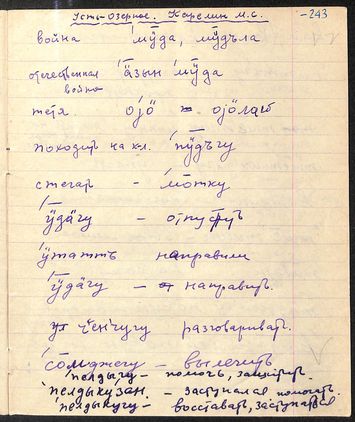 Усть-Озерное. Карелин М.С. -243
война ′мӯда, мӯдъла
отечественная ′а̄̈зын ′мӯда
война
тетя оjӧ оjӧлагв
походит на хл. ′пӱ̄дъгу
стегат - ′мо̄тку
′ӱ̄дӓгу - отпустить
′ӱтаттъ направили
′ӱ̄дӓгу - направить
чэнчугу разговаривать.
′со̄мджегу - вылечить
′пелдыгу - помочь, защитить.
′пелдыкуӡан. - заступался помогать.
′пелдыкугу - восставать, заступаться